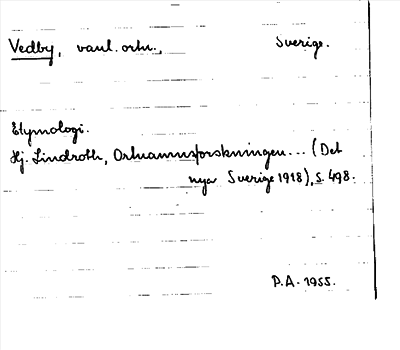 Vedby, vanl. ortn., Sverige.
Etymologi.
Hj. Lindroth, Ortnamnsforskningen... (Det
nya Sverige 1918), s. 498.
P.A. 1955.